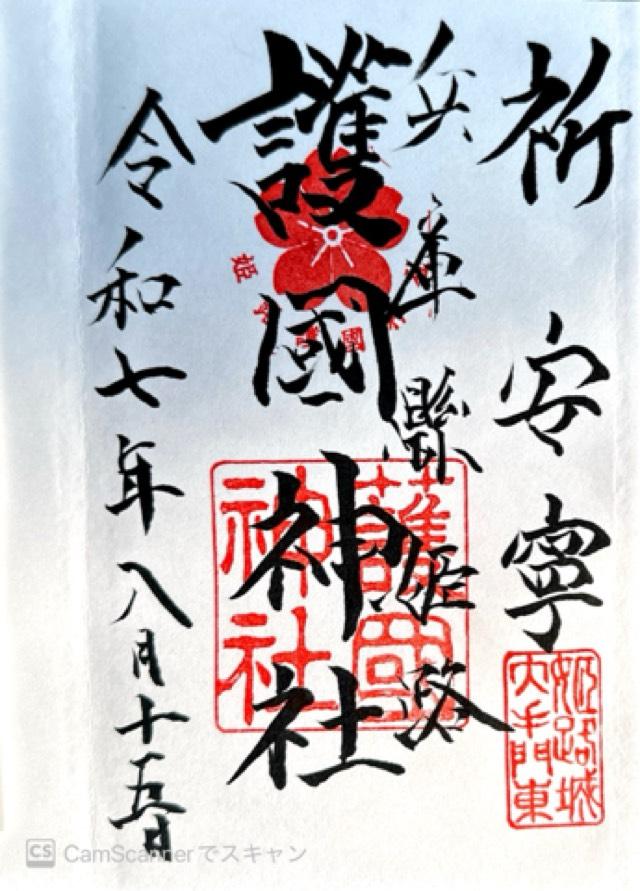 祈安寧
兵庫縣姫路
護國神社
令和七年八月十五日
護國
神社
姫路城
大手門東
CS CamScannerでスキャン